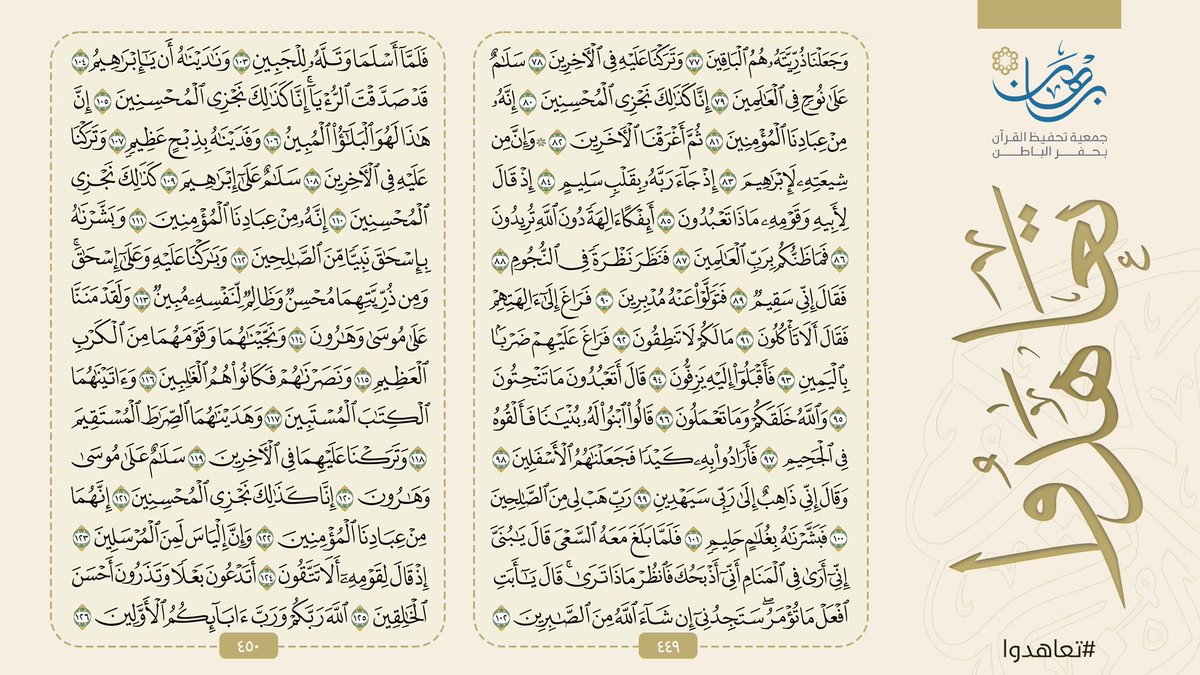 برهان
جمعية تحفيظ القرآن
بحفر الباطن
تعاهدوا
#تعاهدوا
وَجَعَلْنَا ذُرِّيَّتَهُۥ هُمُ ٱلْبَاقِينَ ٧٧ وَتَرَكْنَا عَلَيْهِ فِي ٱلْأَخِرِينَ ٧٨ سَلَٰمٌ
عَلَىٰ نُوحٍ فِي ٱلْعَٰلَمِينَ ٧٩ إِنَّا كَذَٰلِكَ نَجْزِي ٱلْمُحْسِنِينَ ٨٠ إِنَّهُۥ
مِنْ عِبَادِنَا ٱلْمُؤْمِنِينَ ٨١ ثُمَّ أَغْرَقْنَا ٱلْأَخَرِينَ ٨٢ ۞ وَإِنَّ مِن
شِيعَتِهِۦ لَإِبْرَٰهِيمَ ٨٣ إِذْ جَآءَ رَبَّهُۥ بِقَلْبٍ سَلِيمٍ ٨٤ إِذْ قَالَ
لِأَبِيهِ وَقَوْمِهِۦ مَاذَا تَعْبُدُونَ ٨٥ أَئِفْكًا ءَالِهَةً دُونَ ٱللَّهِ تُرِيدُونَ
٨٦ فَمَا ظَنُّكُم بِرَبِّ ٱلْعَٰلَمِينَ ٨٧ فَنَظَرَ نَظْرَةً فِي ٱلنُّجُومِ ٨٨
فَقَالَ إِنِّي سَقِيمٌ ٨٩ فَتَوَلَّوْا۟ عَنْهُ مُدْبِرِينَ ٩٠ فَرَاغَ إِلَىٰٓ ءَالِهَتِهِمْ
فَقَالَ أَلَا تَأْكُلُونَ ٩١ مَا لَكُمْ لَا تَنطِقُونَ ٩٢ فَرَاغَ عَلَيْهِمْ ضَرْبًۢا
بِٱلْيَمِينِ ٩٣ فَأَقْبَلُوٓا۟ إِلَيْهِ يَزِفُّونَ ٩٤ قَالَ أَتَعْبُدُونَ مَا تَنْحِتُونَ
٩٥ وَٱللَّهُ خَلَقَكُمْ وَمَا تَعْمَلُونَ ٩٦ قَالُوا۟ ٱبْنُوا۟ لَهُۥ بُنْيَٰنًا فَأَلْقُوهُ
فِي ٱلْجَحِيمِ ٩٧ فَأَرَادُوا۟ بِهِۦ كَيْدًا فَجَعَلْنَٰهُمُ ٱلْأَسْفَلِينَ ٩٨
وَقَالَ إِنِّي ذَاهِبٌ إِلَىٰ رَبِّي سَيَهْدِينِ ٩٩ رَبِّ هَبْ لِي مِنَ ٱلصَّٰلِحِينَ
١٠٠ فَبَشَّرْنَٰهُ بِغُلَٰمٍ حَلِيمٍ ١٠١ فَلَمَّا بَلَغَ مَعَهُ ٱلسَّعْيَ قَالَ يَٰبُنَيَّ
إِنِّيٓ أَرَىٰ فِي ٱلْمَنَامِ أَنِّيٓ أَذْبَحُكَ فَٱنظُرْ مَاذَا تَرَىٰ ۚ قَالَ يَٰٓأَبَتِ
ٱفْعَلْ مَا تُؤْمَرُ ۖ سَتَجِدُنِيٓ إِن شَآءَ ٱللَّهُ مِنَ ٱلصَّٰبِرِينَ ١٠٢
٤٤٩
فَلَمَّآ أَسْلَمَا وَتَلَّهُۥ لِلْجَبِينِ ١٠٣ وَنَٰدَيْنَٰهُ أَن يَٰٓإِبْرَٰهِيمُ ١٠٤
قَدْ صَدَّقْتَ ٱلرُّءْيَآ ۚ إِنَّا كَذَٰلِكَ نَجْزِي ٱلْمُحْسِنِينَ ١٠٥ إِنَّ
هَٰذَا لَهُوَ ٱلْبَلَٰٓؤُا۟ ٱلْمُبِينُ ١٠٦ وَفَدَيْنَٰهُ بِذِبْحٍ عَظِيمٍ ١٠٧ وَتَرَكْنَا
عَلَيْهِ فِي ٱلْأَخِرِينَ ١٠٨ سَلَٰمٌ عَلَىٰٓ إِبْرَٰهِيمَ ١٠٩ كَذَٰلِكَ نَجْزِي
ٱلْمُحْسِنِينَ ١١٠ إِنَّهُۥ مِنْ عِبَادِنَا ٱلْمُؤْمِنِينَ ١١١ وَبَشَّرْنَٰهُ
بِإِسْحَٰقَ نَبِيًّا مِّنَ ٱلصَّٰلِحِينَ ١١٢ وَبَٰرَكْنَا عَلَيْهِ وَعَلَىٰٓ إِسْحَٰقَ ۚ
وَمِن ذُرِّيَّتِهِمَا مُحْسِنٌ وَظَالِمٌ لِّنَفْسِهِۦ مُبِينٌ ١١٣ وَلَقَدْ مَنَنَّا
عَلَىٰ مُوسَىٰ وَهَٰرُونَ ١١٤ وَنَجَّيْنَٰهُمَا وَقَوْمَهُمَا مِنَ ٱلْكَرْبِ
ٱلْعَظِيمِ ١١٥ وَنَصَرْنَٰهُمْ فَكَانُوا۟ هُمُ ٱلْغَٰلِبِينَ ١١٦ وَءَاتَيْنَٰهُمَا
ٱلْكِتَٰبَ ٱلْمُسْتَبِينَ ١١٧ وَهَدَيْنَٰهُمَا ٱلصِّرَٰطَ ٱلْمُسْتَقِيمَ
١١٨ وَتَرَكْنَا عَلَيْهِمَا فِي ٱلْأَخِرِينَ ١١٩ سَلَٰمٌ عَلَىٰ مُوسَىٰ
وَهَٰرُونَ ١٢٠ إِنَّا كَذَٰلِكَ نَجْزِي ٱلْمُحْسِنِينَ ١٢١ إِنَّهُمَا
مِنْ عِبَادِنَا ٱلْمُؤْمِنِينَ ١٢٢ وَإِنَّ إِلْيَاسَ لَمِنَ ٱلْمُرْسَلِينَ ١٢٣
إِذْ قَالَ لِقَوْمِهِۦٓ أَلَا تَتَّقُونَ ١٢٤ أَتَدْعُونَ بَعْلًا وَتَذَرُونَ أَحْسَنَ
ٱلْخَٰلِقِينَ ١٢٥ ٱللَّهَ رَبَّكُمْ وَرَبَّ ءَابَآئِكُمُ ٱلْأَوَّلِينَ ١٢٦
٤٥٠